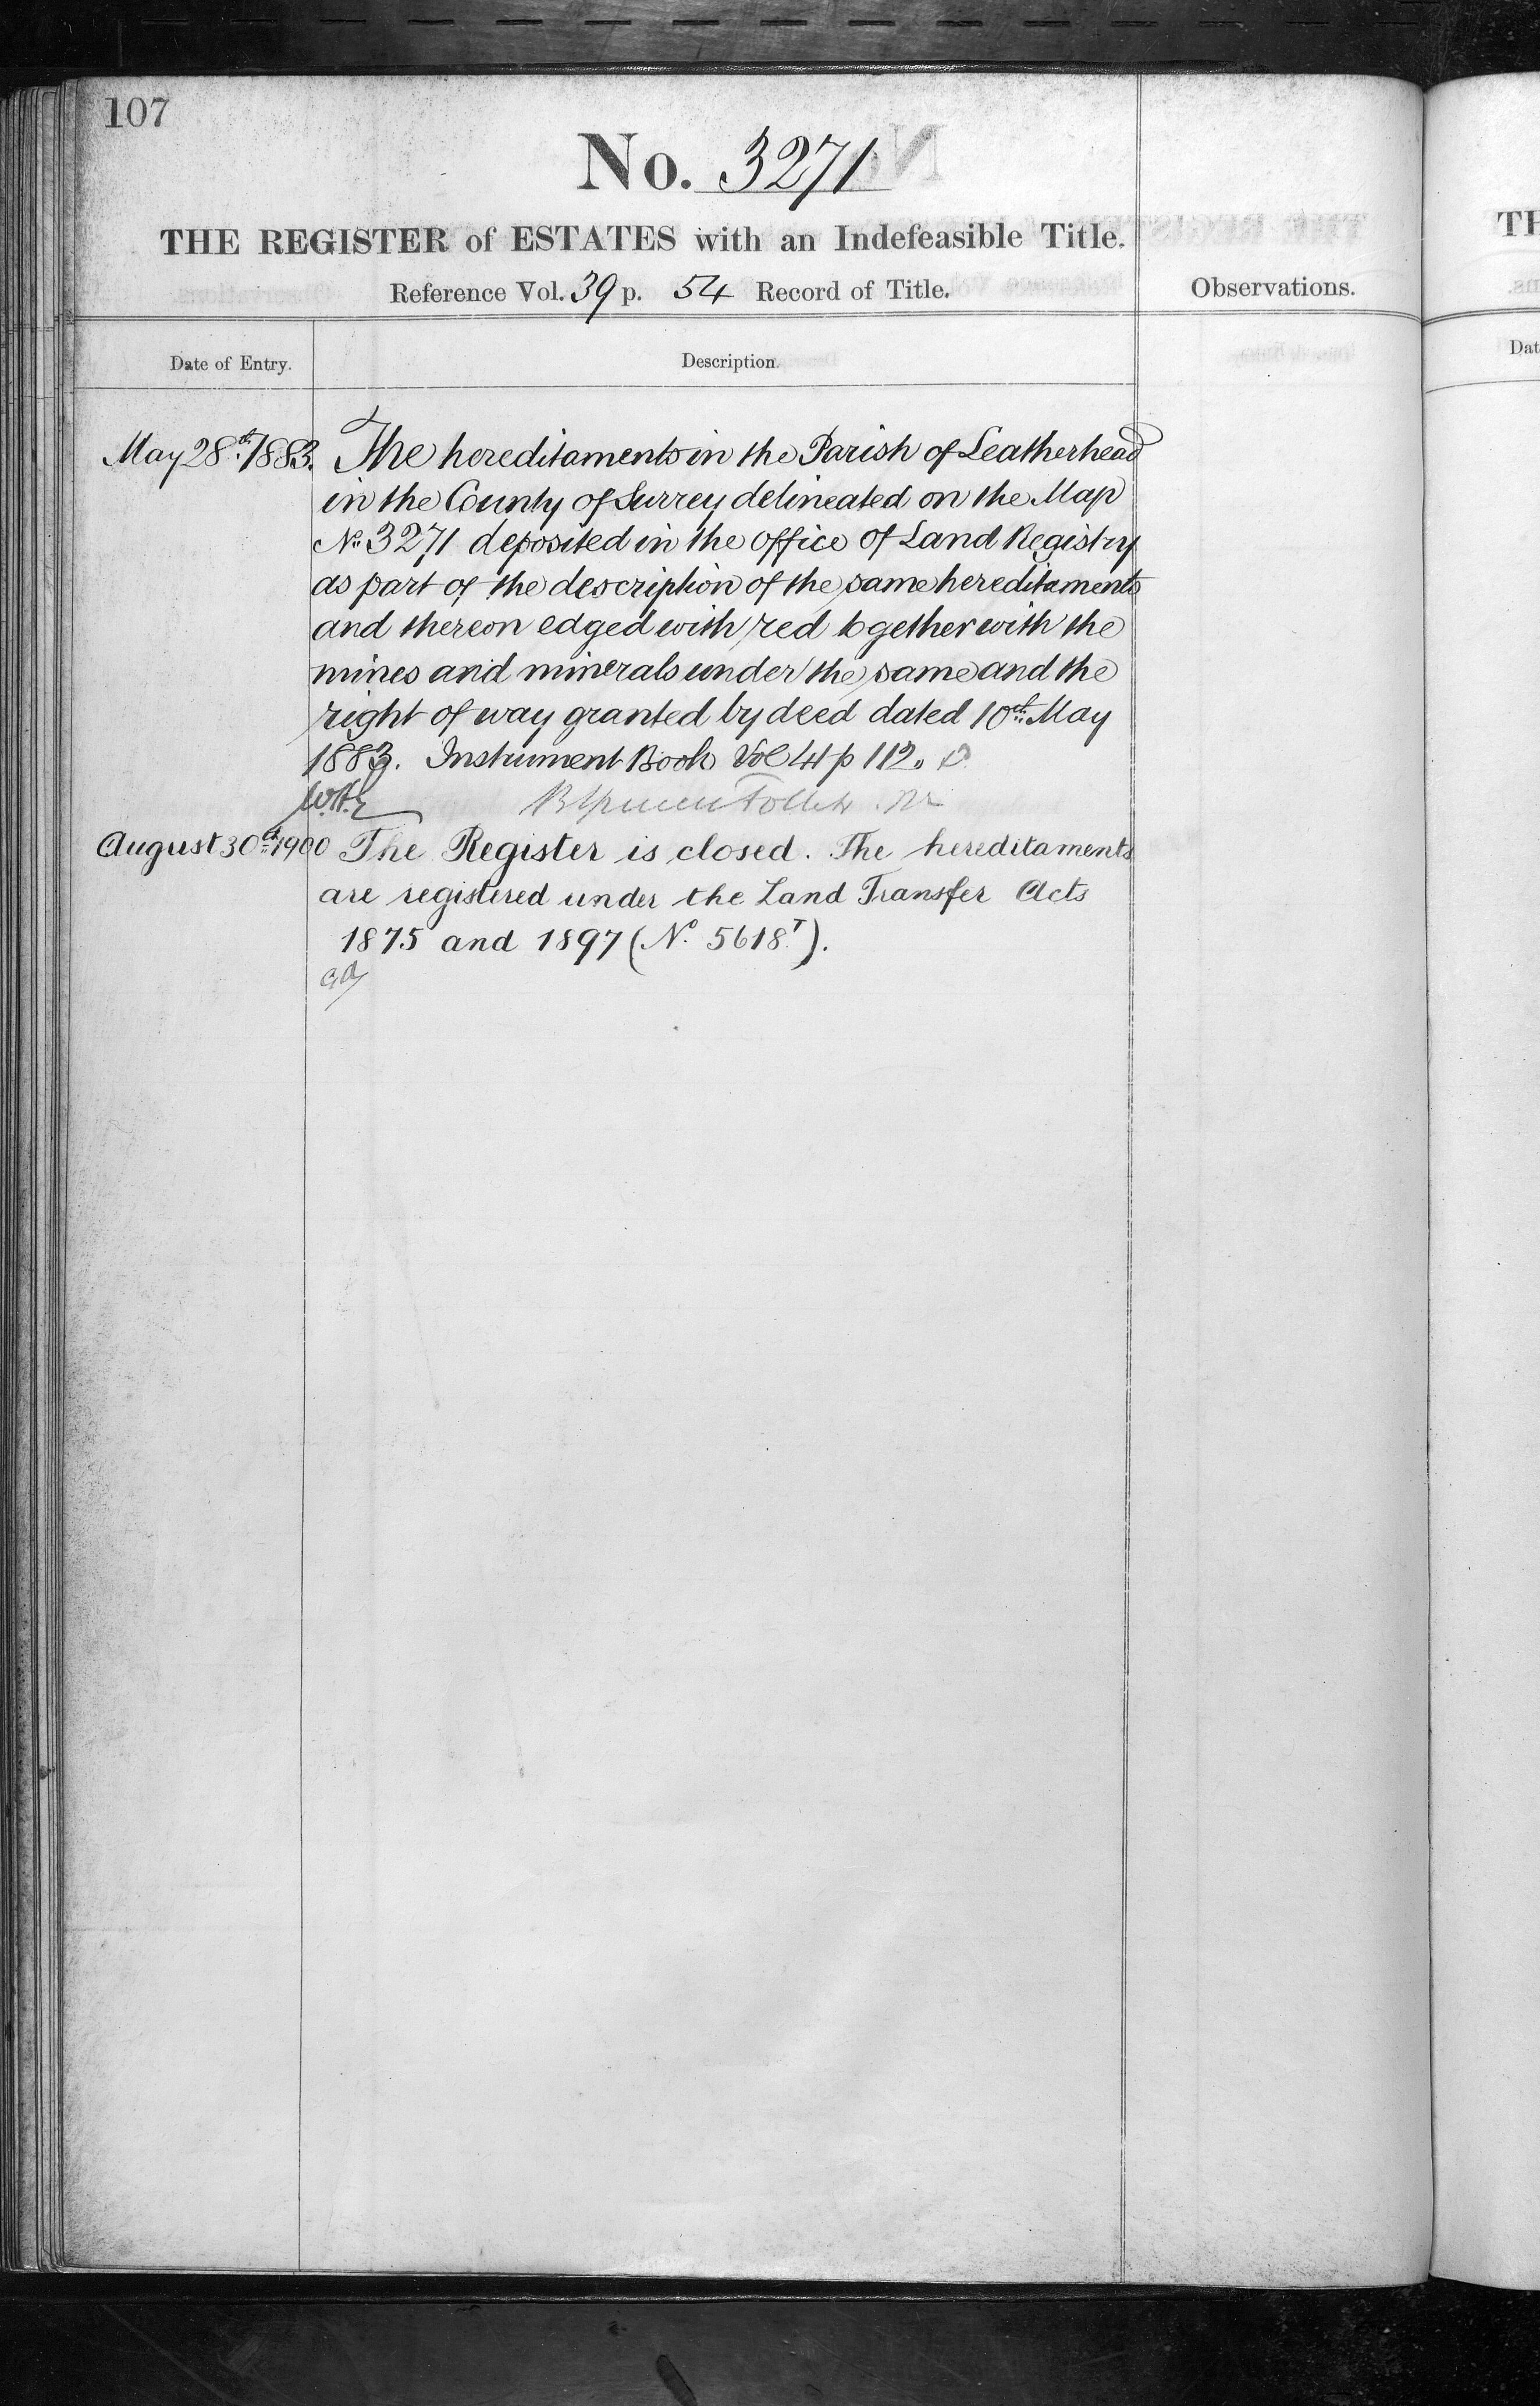 107
No. 3271
THE REGISTER of ESTATES with an Indefeasible Title.
Reference Vol. 39 p. 54 Record of Title.
Observations.
Date of Entry.
Description.
May 28th 1883.
The hereditaments in the Parish of Leatherhead
in the County of Surrey delineated on the Map
No. 3271 deposited in the office of Land Registry
as part of the description of the same hereditaments
and thereon edged with red together with the
mines and minerals under the same and the
right of way granted by deed dated 10th May
1883. Instrument Book Vol 41 p 112.
August 30th 1900
The Register is closed. The hereditaments
are registered under the Land Transfer Acts
1875 and 1897 (No. 5618T).
TH
Dat